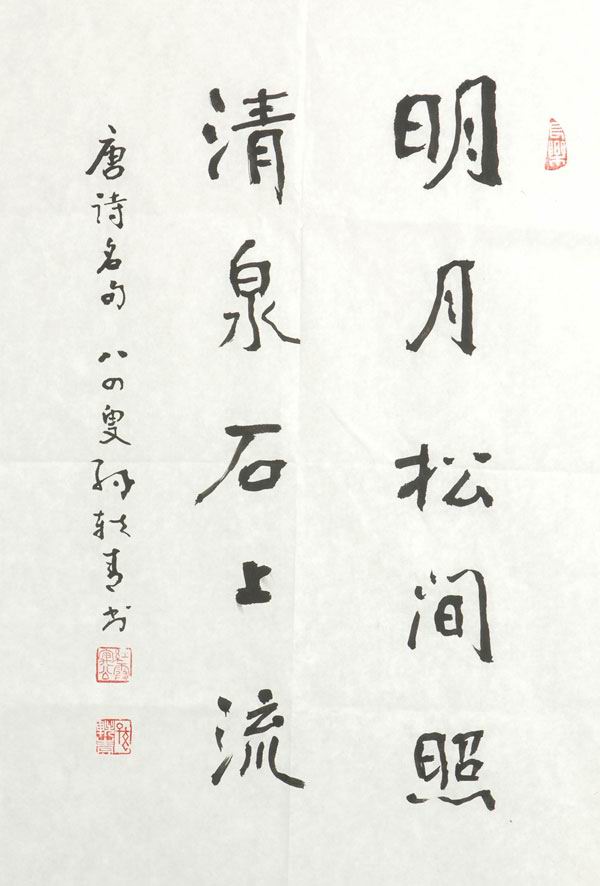 明月松间照
清泉石上流
唐詩名句 八四叟孙轶青书